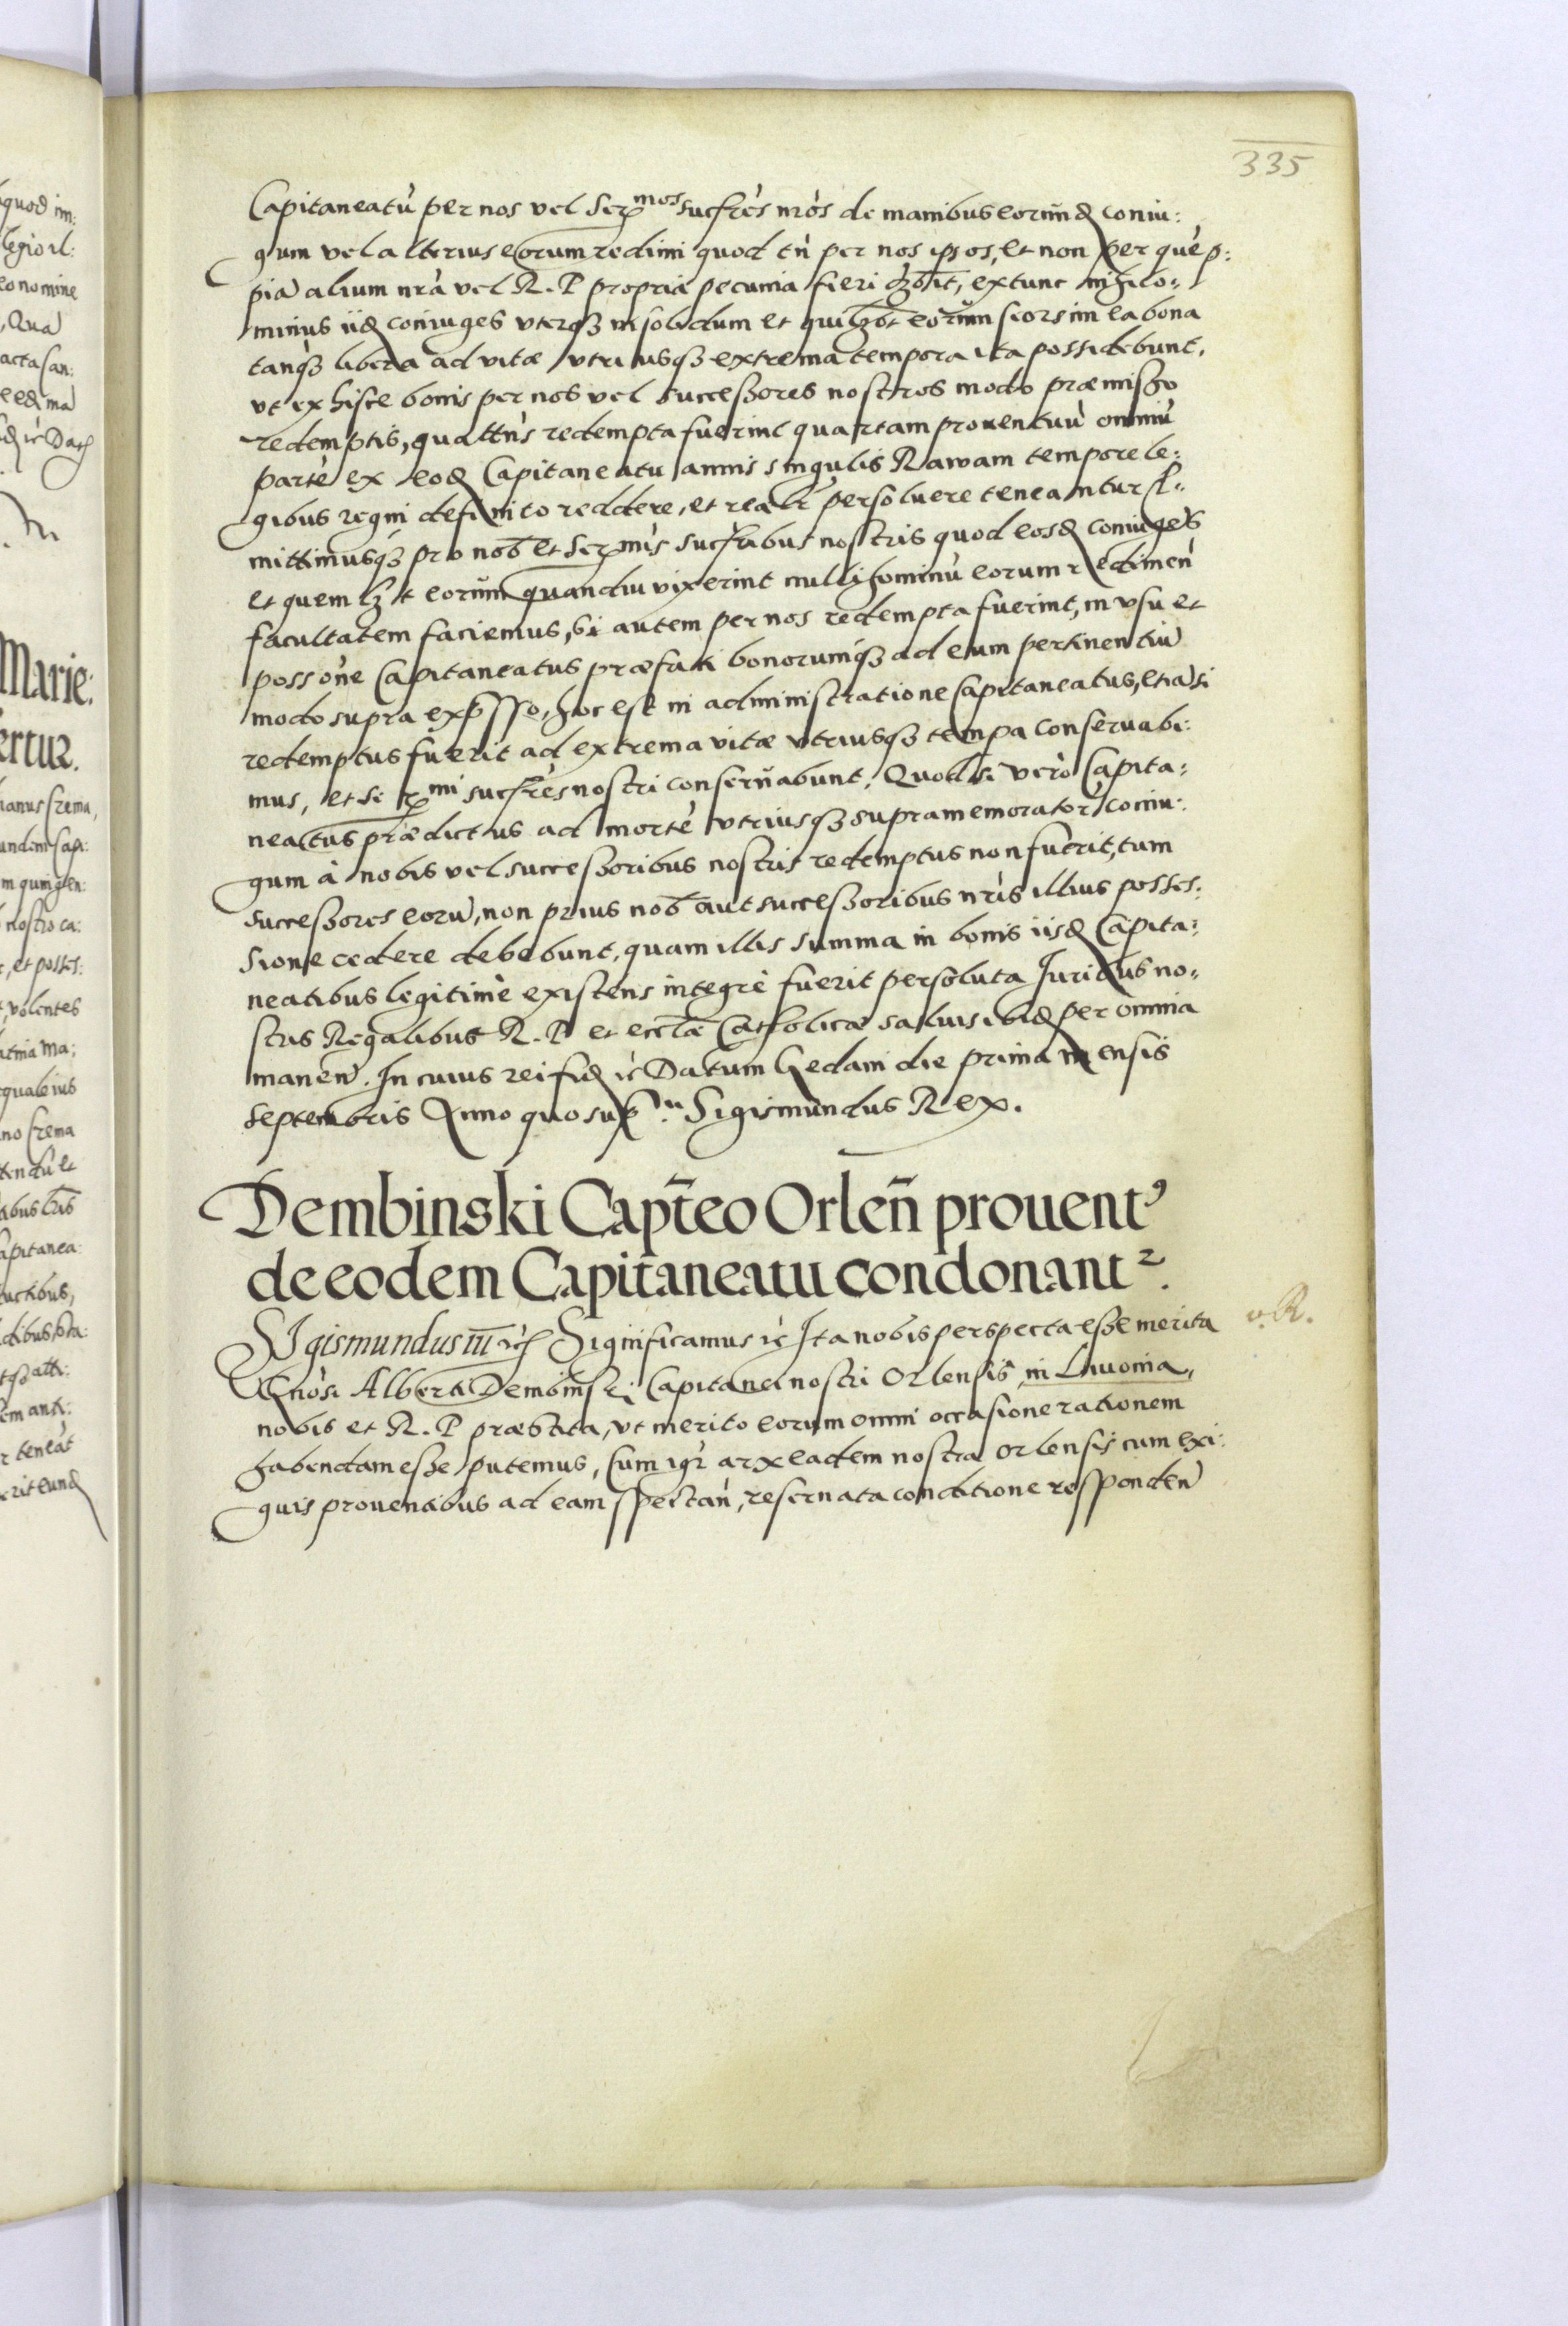 335
Capitaneatù per nos vel Ser^mos sucſrès nròs de manibus eorund coniu:
gum vel alterius eorum redimi quod tñ per nos ipsos, et non per què p:
pià alium nrà vel R. P. propria pecunia fieri ꝫbit, extunc nihilo:
minus iid coniuges vterqꝫ in solidum et quilꝫbt eorum seorsim ea bona
tanqꝫ libera ad vitæ vtriusqꝫ extrema tempora ita possidebunt,
vt ex hisce bonis per nos vel successores nostros modo præmisso
redemptis, quattñs redempta fuerint quartam prouentuù omniù
partè ex eod Capitaneatu annis singulis Rawam tempore le:
gibus regni definito reddere, et realr persoluere teneantur
mittimusqꝫ pro nob et Sermis sucſrabus nostris quod eosd coniuges
et quemlꝫt eorum quandiu vixerint nulli hominù eorum redimeñ
facultatem faciemus, si autem per nos redempta fuerint, in vsu et
possòne Capitaneatus præfati bonorumqꝫ ad eum pertinentiù
modo supra exp̃sso, hoc est in administratione Capitaneatus, etiàsi
redemptus fuerit ad extrema vitæ vtriusqꝫ tempa conseruabi:
mus, et Ser^mi sucſrès nostri conseruabunt. Quod si verò Capita:
neatus prædictus ad mortè vtriusqꝫ supramemorator coniu:
gum à nobis vel successoribus nostris redemptus non fuerit, tum
successores eorù, non prius nob aut successoribus nrìs illius posses:
sione cedere debebunt, quam illis summa in bonis iisd Capita:
neatibus legitimè existens integrè fuerit persoluta Iuribus no:
stris Regalibus R. P. et ecclæ Catholicæ saluis ibid per omnia
maneñ. In cuius rei fid ꝛc Datum Gedani die prima mensis
Septembris Anno quo sup^a Sigismundus Rex.
Dembinski Capt̃eo Orleñ prouentꝰ
de eodem Capitaneatu condonant^2.
SIgismundus iii ꝛc Significamus ꝛc Ita nobis perspecta esse merita
v. R.
Gnòsi Alberti Dembinski Capitanei nostri Orlensis in Liuonia,
nobis et R. P. præstita, vt merito eorum omni occasione rationem
habendam esse putemus, Cum igr arx eadem nostra Orlensis cum exi:
guis prouentibus ad eam spectañ, reseruata conditione respondeñ